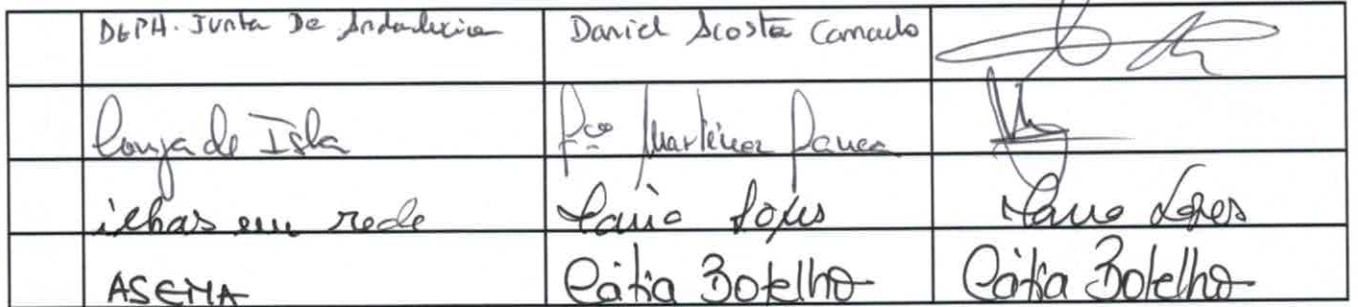 DGPH. Junta De Andalucía Daniel Acosta Camacho
Lonja de Isla Fco Martínez
ilhas em rede Mario Lopes Mario Lopes
ASEMA Cátia Botelho Cátia Botelho